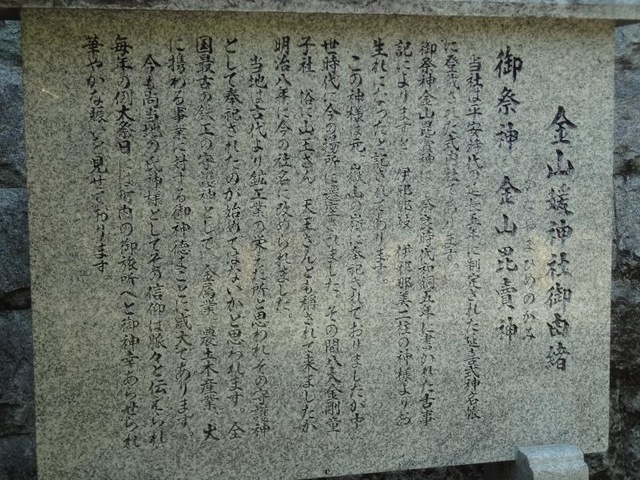 金山媛神社御由緒
かなやまひめのかみ
御祭神 金山毘賣神
当社は平安時代の延喜五年に制定された延喜式神名帳
に登載された式内社であります。
御祭神金山毘賣神は奈良時代和銅五年に書かれた古事
記によりますと、伊邪那岐 伊邪那美二柱の神様よりお
生れになったと記されてあります。
この神様は元 嶽山の嶺に奉祀されておりましたが中
世時代に今の場所に遷座されました。その間八大金剛童
子社 俗に山王さん 天王さんとも称されて来ましたが
明治八年に今の社名に改められました。
当地は古代より鉱工業の栄えた所と思われその守護神
として奉祀されたのが始めではないかと思われます 全
国最古の鉱工の守護神として、金属業 農土木産業 火
に携わる事業に対する御神徳まことに威大であります。
今も尚当地の氏神様としてその信仰は脈々と伝えられ
毎年の例大祭日には町内の御旅所へと御神幸あらせられ
華やかな賑いを見せております。